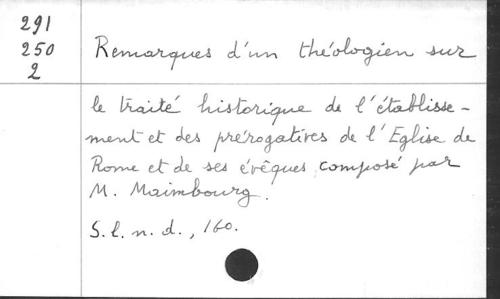 291
250
2
Remarques d'un théologien sur
le traité historique de l'établisse-
ment et des prérogatives de l'Eglise de
Rome et de ses évêques, composé par
M. Maimbourg.
S.l.n.d., 16o.